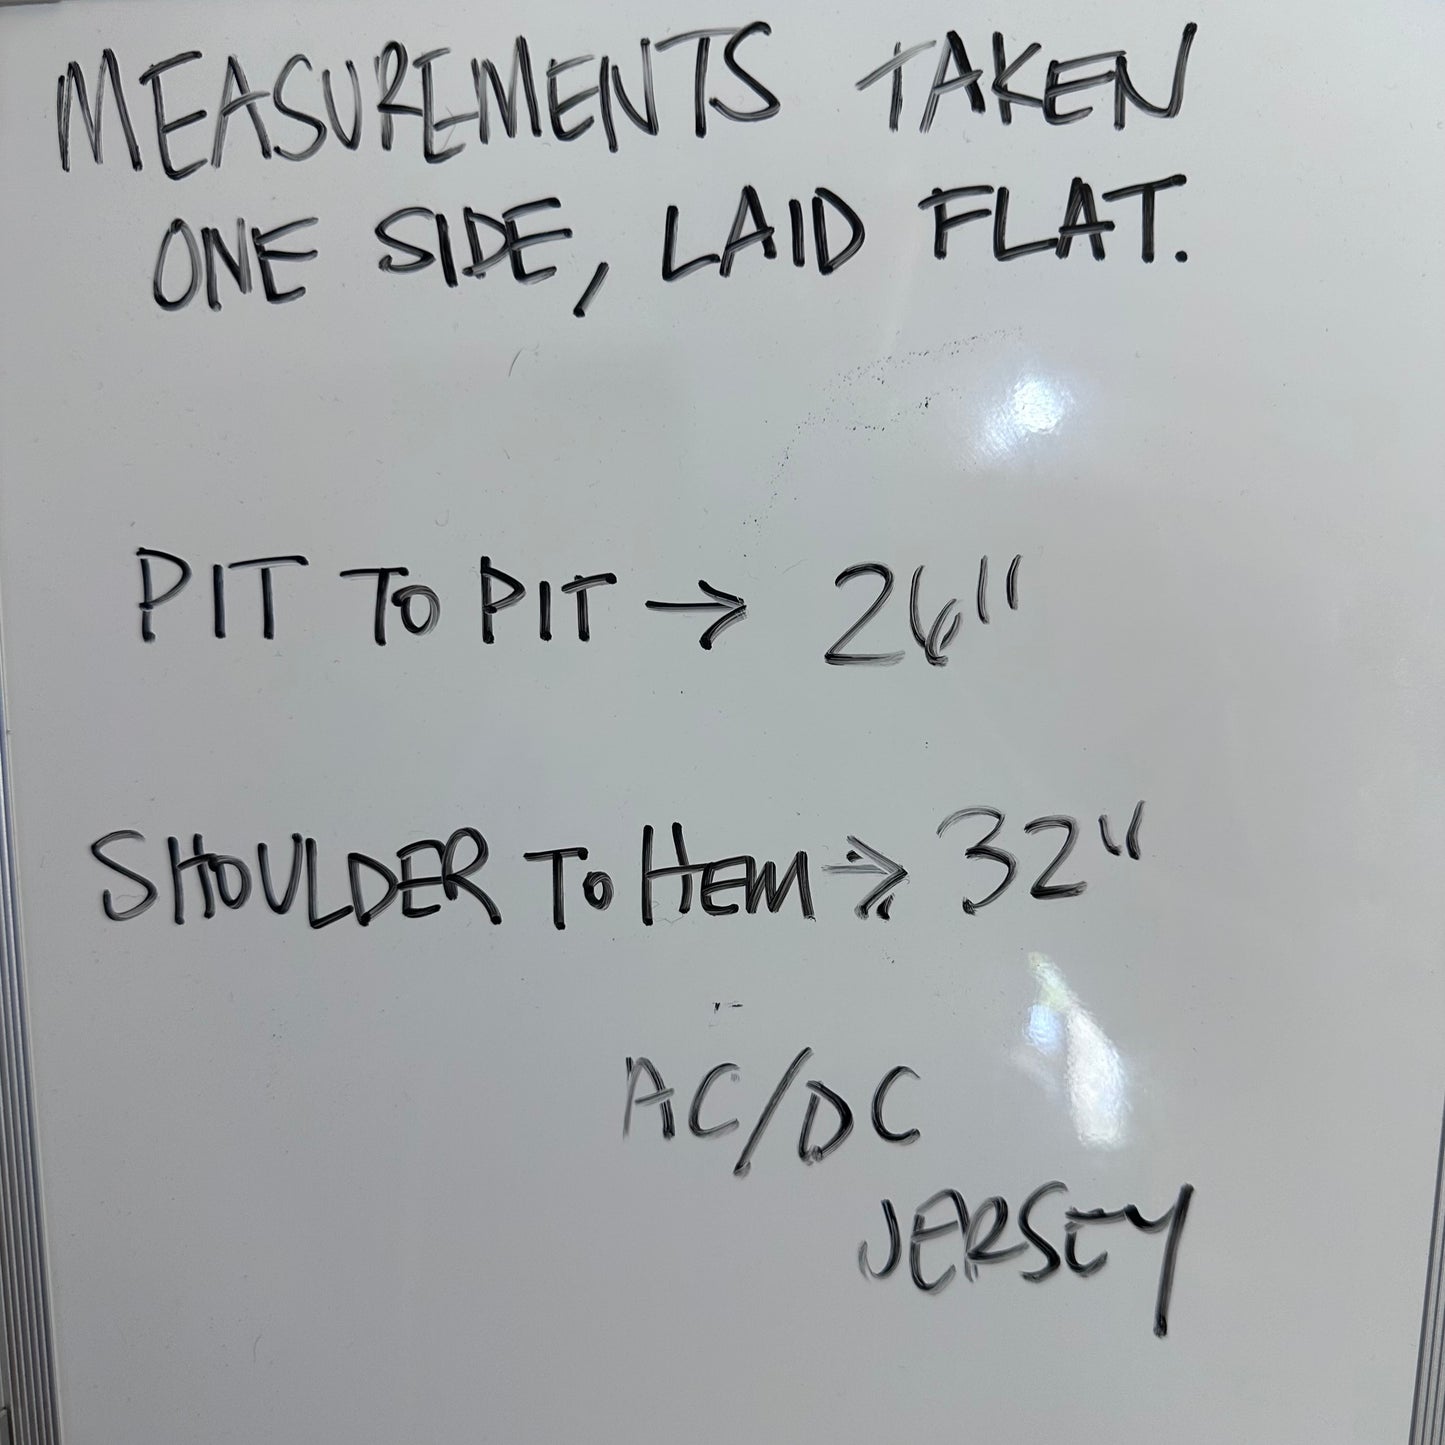 MEASUREMENTS TAKEN
ONE SIDE, LAID FLAT.
PIT TO PIT → 26"
SHOULDER TO HEM → 32"
AC/DC
JERSEY